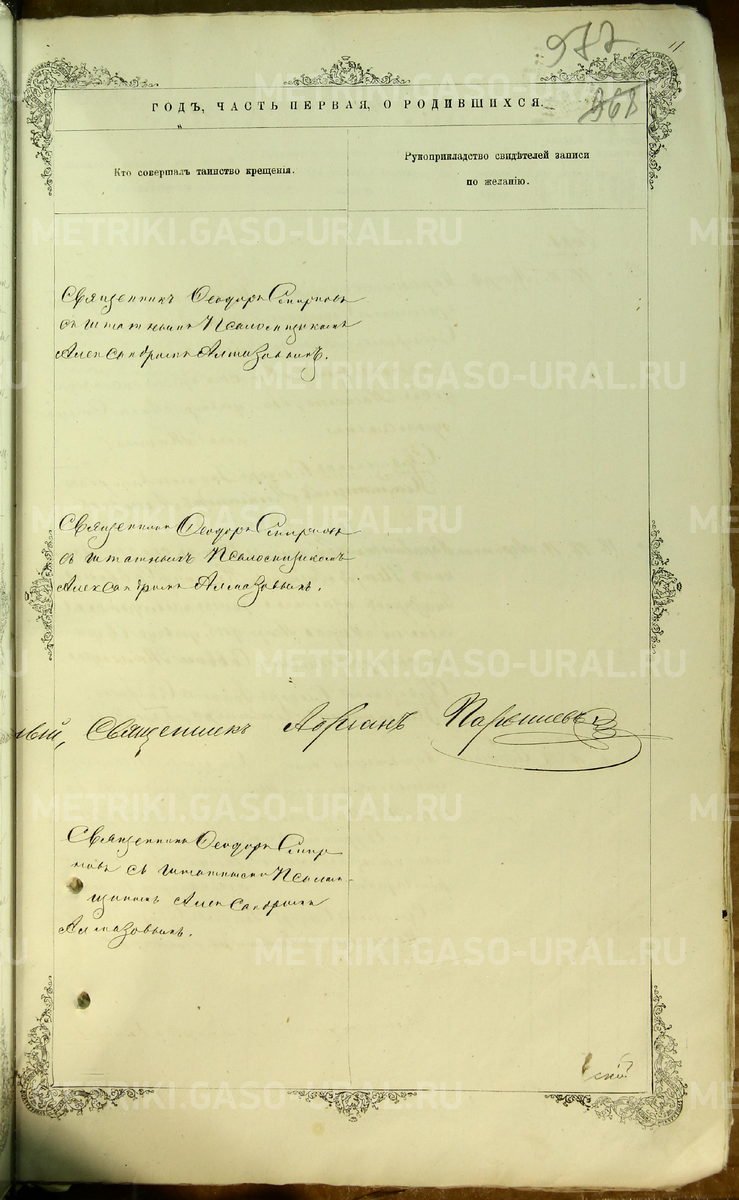 977
11
968
ГОДЪ, ЧАСТЬ ПЕРВАЯ, О РОДИВШИХСЯ.
Кто совершалъ таинство крещенія.
Рукоприкладство свидѣтелей записи
по желанію.
Священникъ Ѳеодоръ Смирновъ
съ штатнымъ Псаломщикомъ
Александромъ Алмазовымъ.
Священникъ Ѳеодоръ Смирновъ
съ штатнымъ Псаломщикомъ
Александромъ Алмазовымъ.
Священникъ Адріанъ
Священникъ Ѳеодоръ Смир
новъ съ штатнымъ Псалом-
щикомъ Александромъ
Алмазовымъ.
METRIKI.GASO-URAL.RU